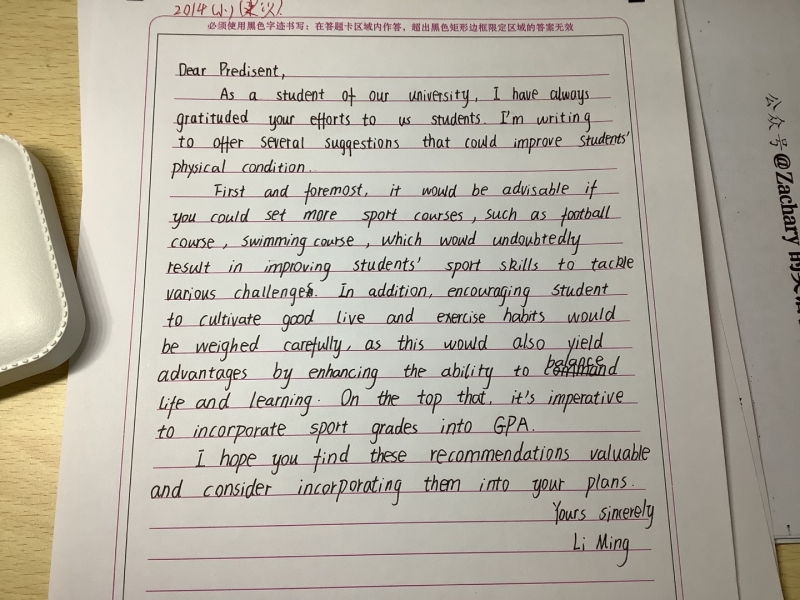 2014(小)(建议)
必须使用黑色字迹书写;在答题卡区域内作答,超出黑色矩形边框限定区域的答案无效
Dear Predisent,
As a student of our university, I have always
gratituded your efforts to us students. I'm writing
to offer several suggestions that could improve students'
physical condition.
First and foremost, it would be advisable if
you could set more sport courses, such as football
course, swimming course, which would undoubtedly
result in improving students' sport skills to tackle
various challenges. In addition, encouraging student
to cultivate good live and exercise habits would
be weighed carefully, as this would also yield
balance
advantages by enhancing the ability to command
life and learning. On the top that, it's imperative
to incorporate sport grades into GPA.
I hope you find these recommendations valuable
and consider incorporating them into your plans.
Yours sincerely
Li Ming
公众号@Zachary的